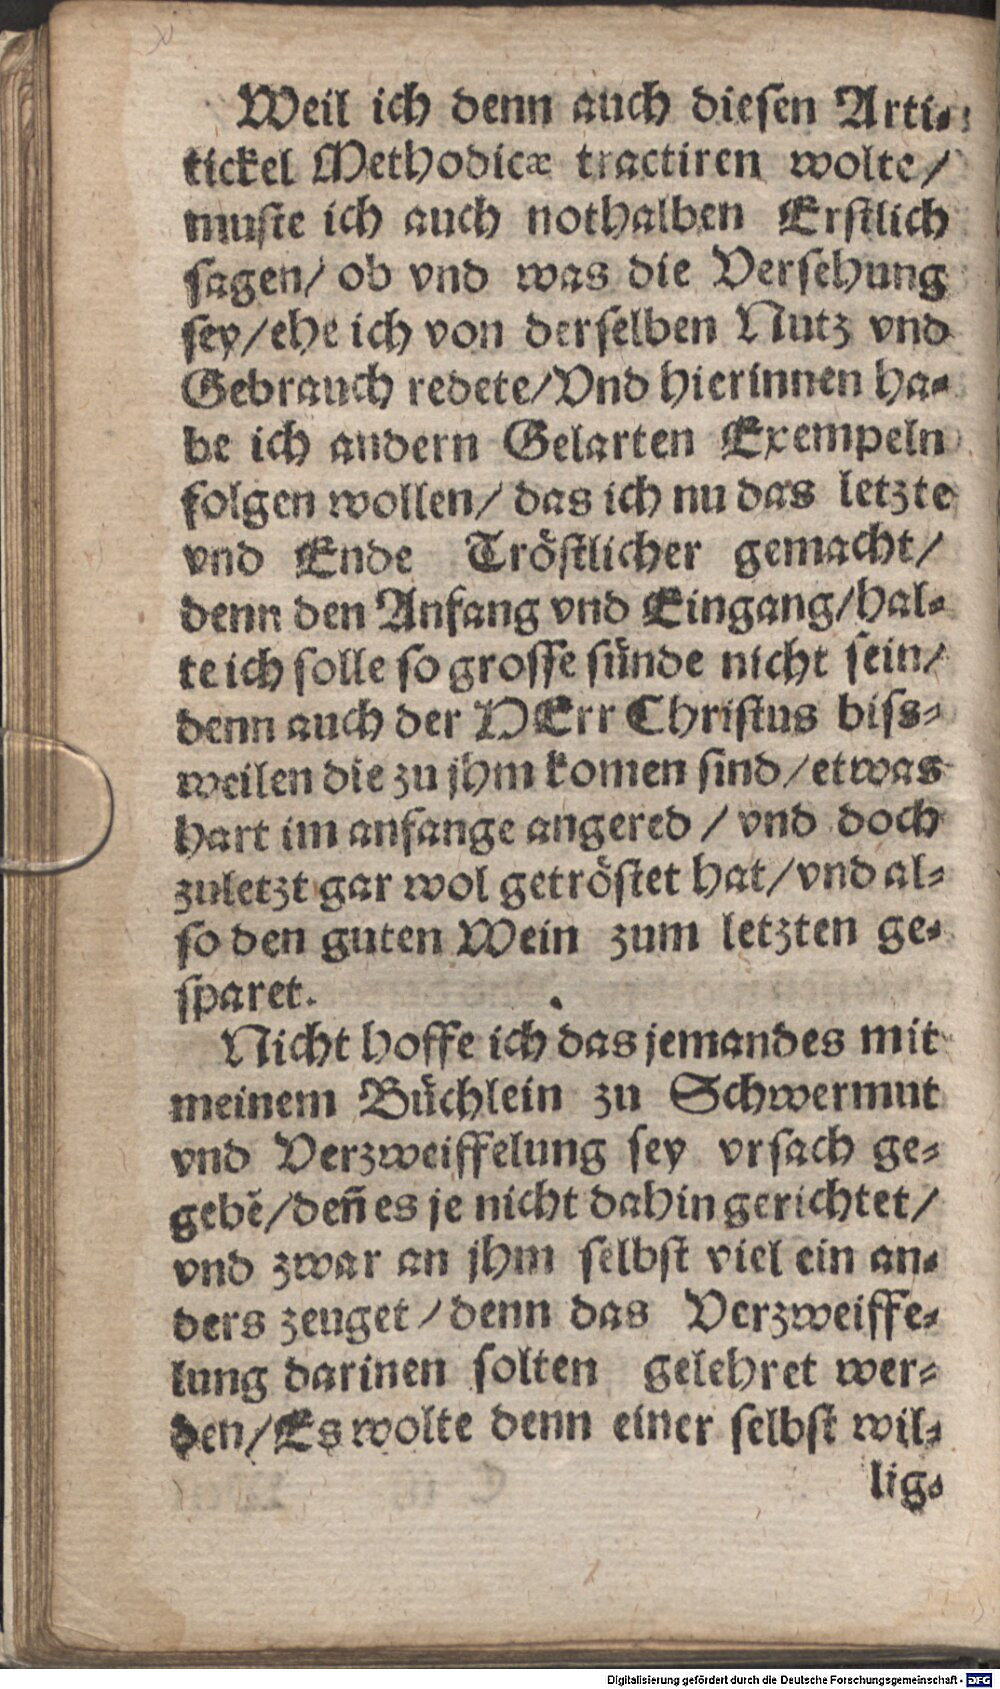 Weil ich denn auch diesen Arti-
tickel Methodicæ tractiren wolte/
muste ich auch nothalben Erstlich
sagen/ ob vnd was die Versehung
sey/ehe ich von derselben Nutz vnd
Gebrauch redete/Vnd hierinnen ha-
be ich andern Gelarten Exempeln
folgen wollen/ das ich nu das letzte
vnd Ende Tröstlicher gemacht/
denn den Anfang vnd Eingang/hal-
te ich solle so grosse sünde nicht sein/
denn auch der HErr Christus biss-
weilen die zu jhm komen sind/etwas
hart im anfange angered / vnd doch
zuletzt gar wol getröstet hat/vnd al-
so den guten Wein zum letzten ge-
sparet.
Nicht hoffe ich das jemandes mit
meinem Büchlein zu Schwermut
vnd Verzweiffelung sey vrsach ge-
gebē/deñ es je nicht dahin gerichtet/
vnd zwar an jhm selbst viel ein an-
ders zeuget/denn das Verzweiffe-
lung darinen solten gelehret wer-
den/Es wolte denn einer selbst wil-
lig-
Digitalisierung gefördert durch die Deutsche Forschungsgemeinschaft - DFG